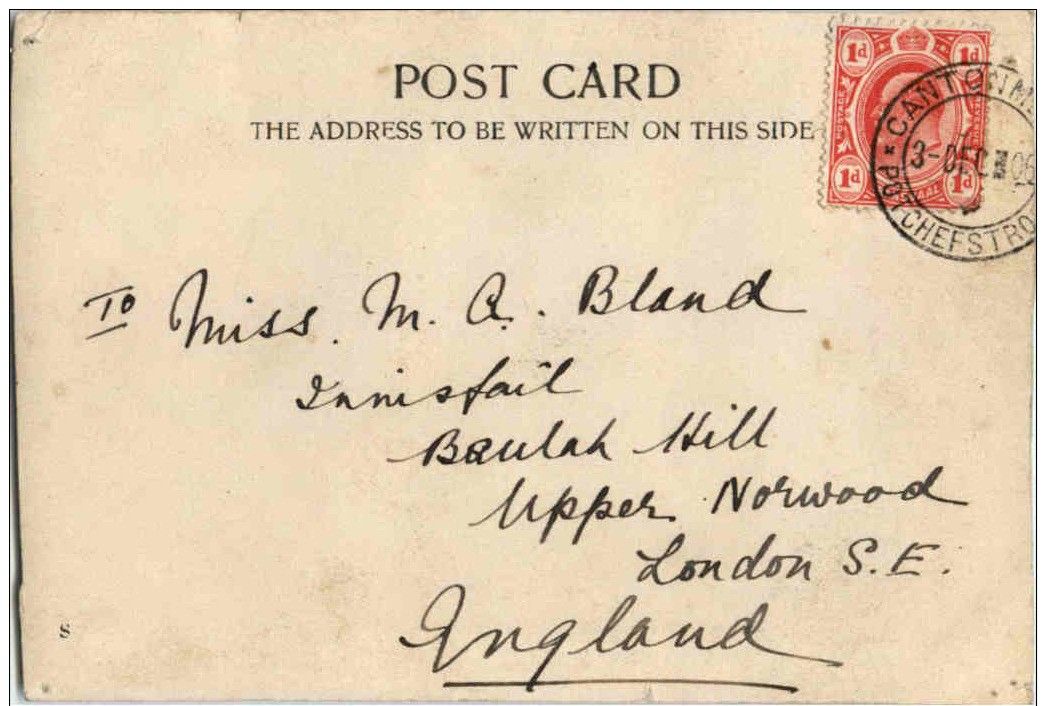 POST CARD
THE ADDRESS TO BE WRITTEN ON THIS SIDE
1d 1d
POSTAGE
1d 1d
* CANTONM
3-DEC 06
POTCHEFSTRO
To Miss. M. A. Bland
Innisfail
Beulah Hill
Upper Norwood
London S.E.
England